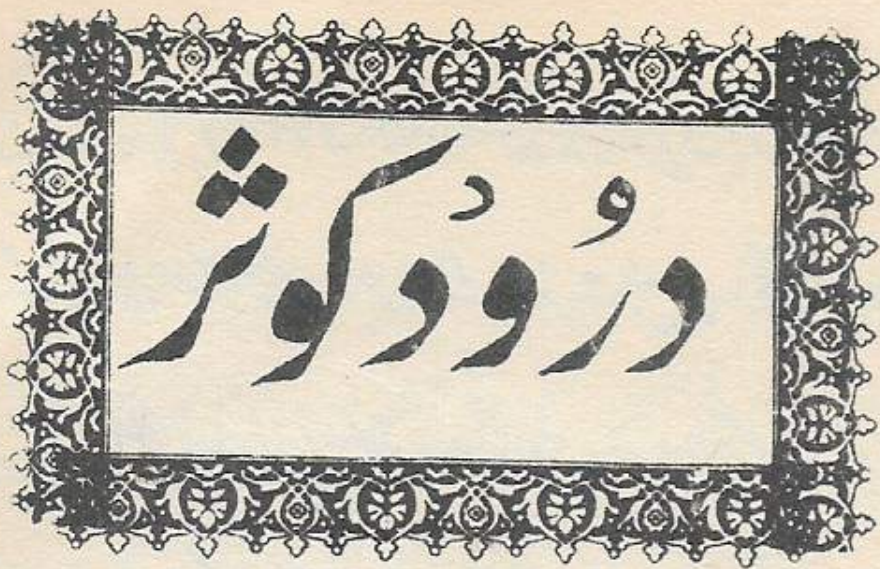 دُرُودْ کوثر